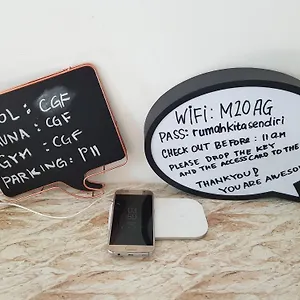 OL : CGF
UNA : CGF
GYM : CGF
PARKING : P11
WiFi : M20AG
PASS: rumahkitasendiri
CHECK OUT BEFORE : 11 am
PLEASE DROP THE KEY
AND THE ACCESS CARD TO THE
THANKYOU
YOU ARE AWESO